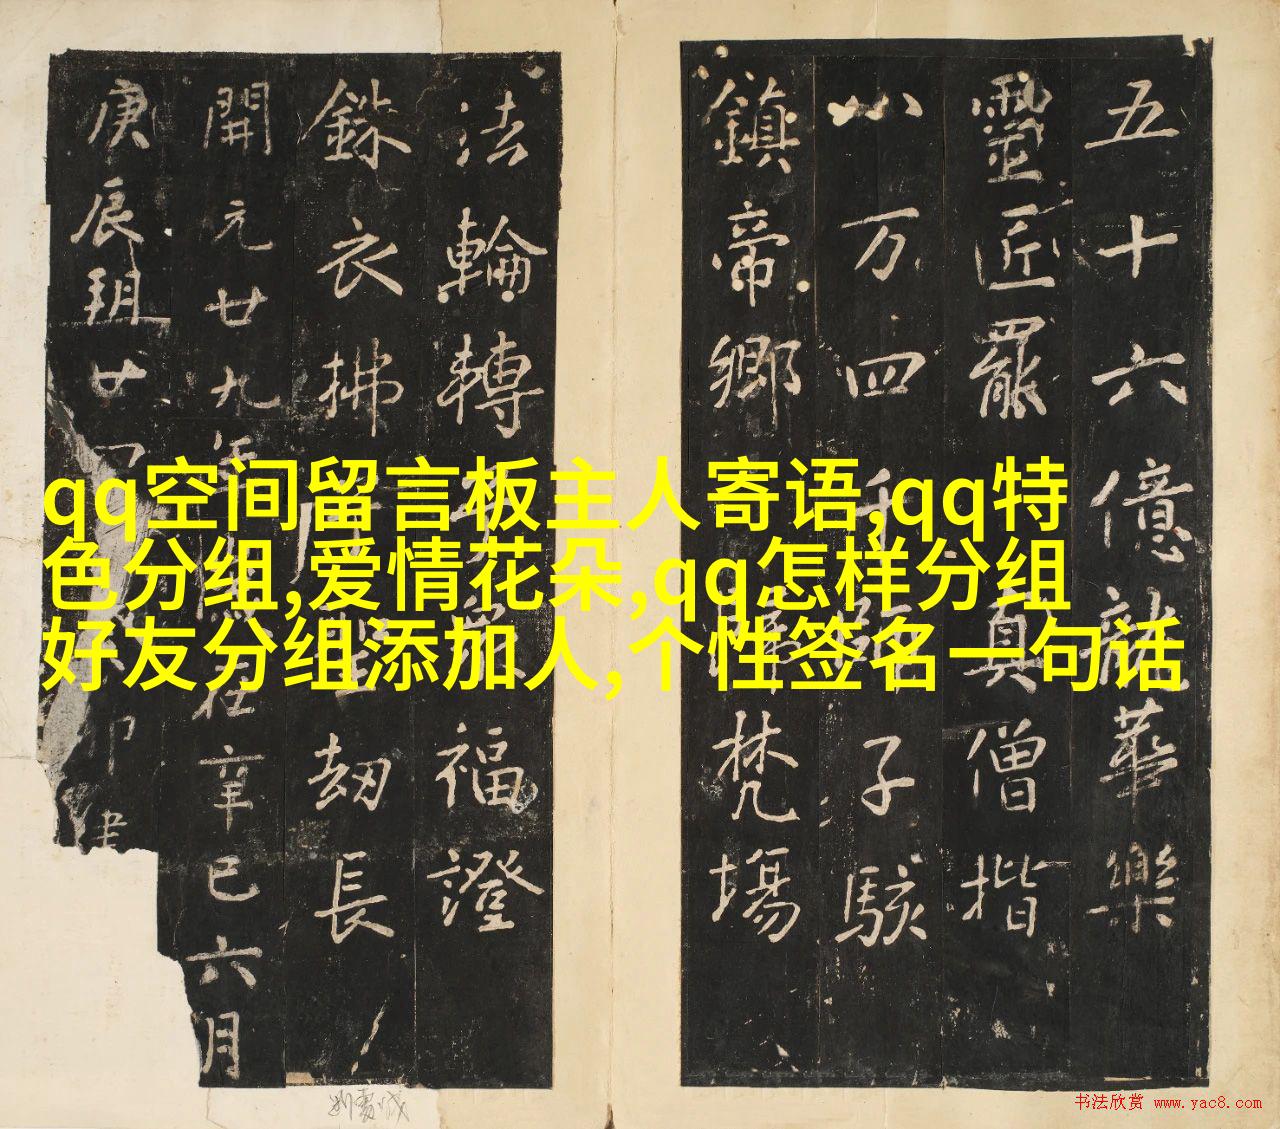 五十六億龍華樂
靈匠罷真僧揩
八万四千子駭
鎮帝鄉梵場
法輪轉福證
銖衣拂堅劫長
開元廿九年在辛巳六月
庚辰朔廿四卯建
qq空间留言板主人寄语,qq特
色分组,爱情花朵,qq怎样分组
好友分组添加人,个性签名一句话
书法欣赏 www.yac8.com